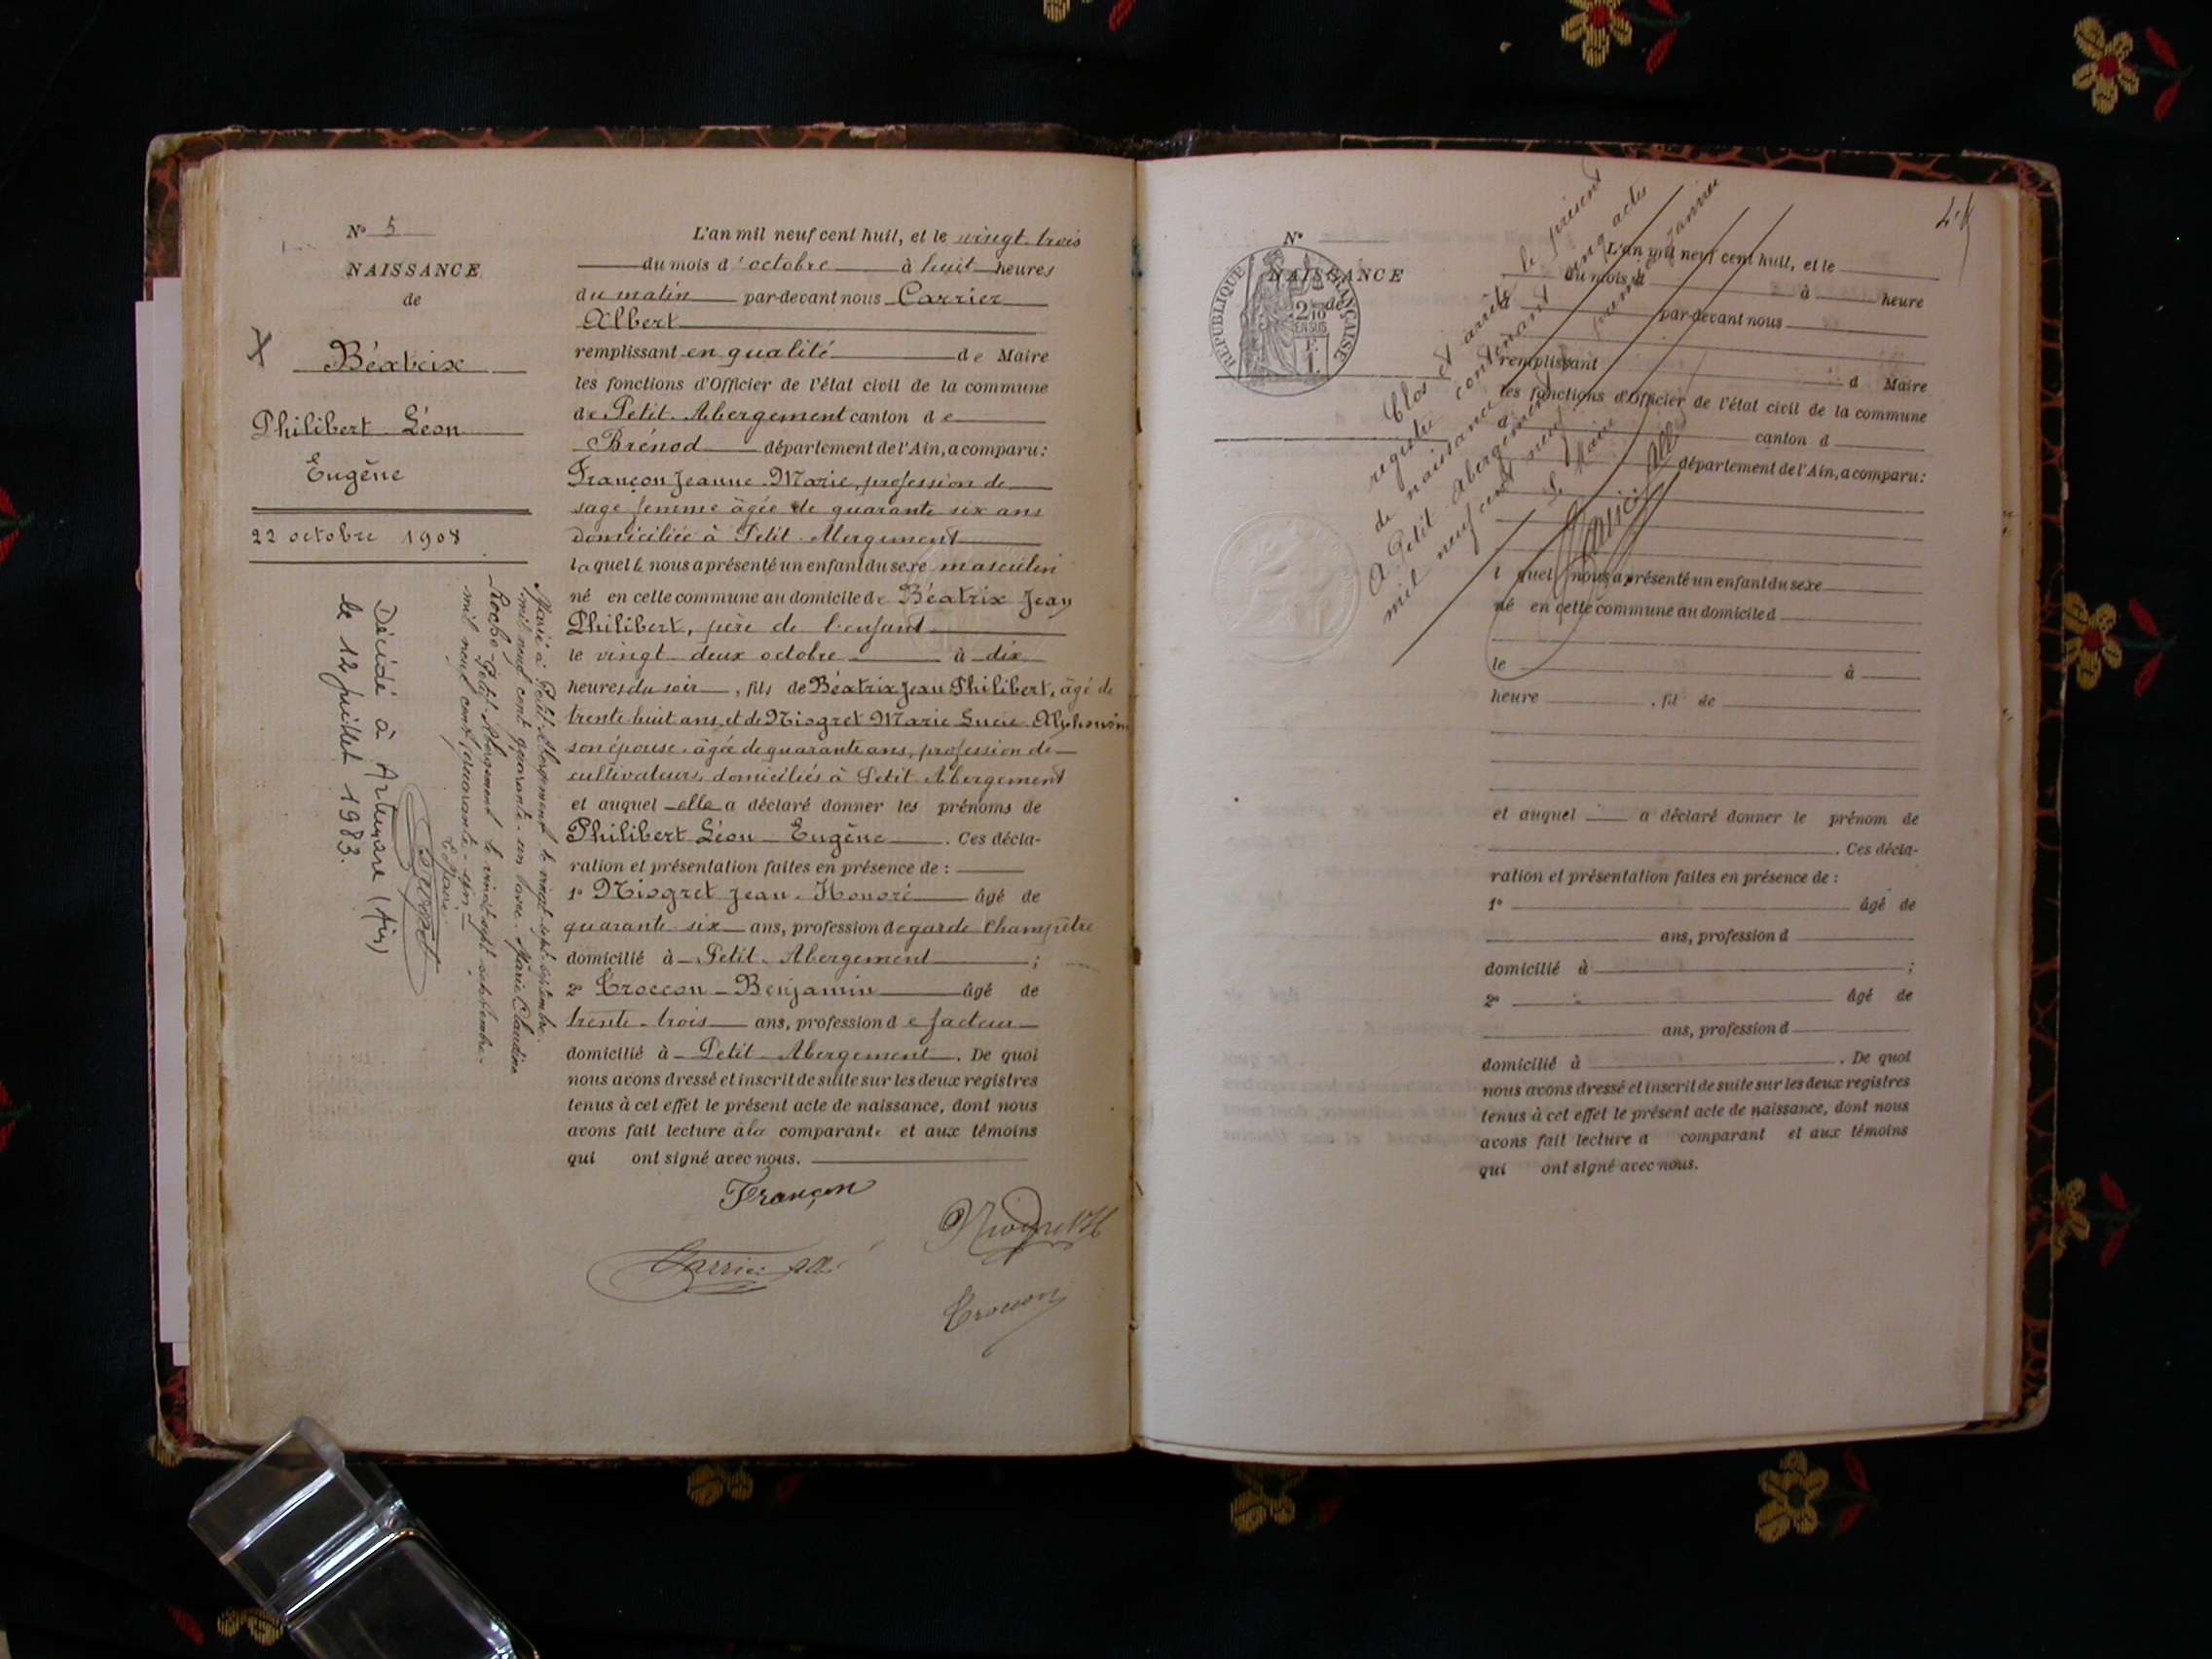 N° 5
NAISSANCE
de
Béatrix
Philibert Léon
Eugène
22 octobre 1908
Marié à Petit-Abergement le vingt-sept septembre
mil neuf cent quarante-un avec Marie Claudine
Petit-Abergement le vingt-sept septembre
mil neuf cent quarante-un
Le Maire
Décédé à Artemare (Ain)
le 12 juillet 1983.
L'an mil neuf cent huit, et le vingt-trois
du mois d'octobre à huit heures
du matin par-devant nous Carrier
Albert
remplissant en qualité de Maire
les fonctions d'Officier de l'état civil de la commune
de Petit-Abergement canton de
Brénod département de l'Ain, a comparu :
Françon Jeanne-Marie, profession de
sage femme âgée de quarante six ans
domiciliée à Petit-Abergement
laquelle nous a présenté un enfant du sexe masculin
né en cette commune au domicile de Béatrix Jean
Philibert, père de l'enfant
le vingt-deux octobre à dix
heures du soir, fils de Béatrix Jean Philibert, âgé de
trente huit ans, et de Niogret Marie Lucie Alphonsine
son épouse, âgée de quarante ans, profession de
cultivateurs, domiciliés à Petit Abergement
et auquel elle a déclaré donner les prénoms de
Philibert Léon Eugène. Ces décla-
ration et présentation faites en présence de :
1° Niogret Jean-Honoré âgé de
quarante six ans, profession de garde Champêtre
domicilié à Petit-Abergement ;
2° Troccon Benjamin âgé de
trente-trois ans, profession de facteur
domicilié à Petit-Abergement. De quoi
nous avons dressé et inscrit de suite sur les deux registres
tenus à cet effet le présent acte de naissance, dont nous
avons fait lecture à la comparante et aux témoins
qui ont signé avec nous.
Françon
Niogret H
Carrier Alb
Troccon
N°
NAISSANCE
de
RÉPUBLIQUE FRANÇAISE
2/10 EN SUS
L'an mil neuf cent huit, et le
du mois d à heure
d par-devant nous
remplissant d Maire
les fonctions d'Officier de l'état civil de la commune
d canton d
département de l'Ain, a comparu :
l quel nous a présenté un enfant du sexe
né en cette commune au domicile d
le à
heure , fil de
et auquel a déclaré donner le prénom de
. Ces décla-
ration et présentation faites en présence de :
1° âgé de
ans, profession d
domicilié à ;
2° âgé de
ans, profession d
domicilié à . De quoi
nous avons dressé et inscrit de suite sur les deux registres
tenus à cet effet le présent acte de naissance, dont nous
avons fait lecture a comparant et aux témoins
qui ont signé avec nous.
Clos et arrêté le présent
registre contenant cinq actes
de naissance
A Petit Abergement janvier
mil neuf cent neuf
Le Maire
Carrier Alb